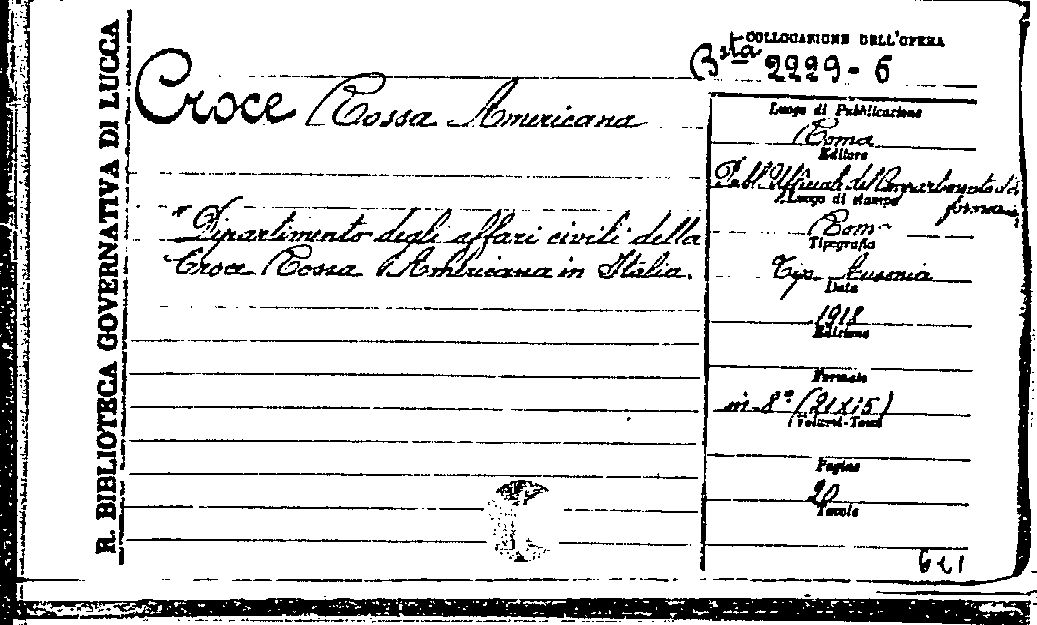 R. BIBLIOTECA GOVERNATIVA DI LUCCA
Croce Rossa Americana
"Dipartimento degli affari civili della
Croce Rossa Americana in Italia.
COLLOCAZIONE DELL'OPERA
Bsta 2229-6
Luogo di Pubblicazione
Roma
Editore
Pubbl. Ufficiale del Compartimento di
Luogo di stampa
Rom
Tipografia
Tip. Ausonia
Data
1918
Edizione
Formato
in-8° (21x15)
Volumi-Tomi
Pagine
20
Tavole